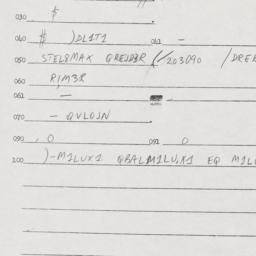 030 $
040 $ )DL1T1 041 —
050 STEL8MAX QREID3R // 203090 /DRE
060 RIM3R
061 —
070 — QVLOJN
090 , 0 091 0
100 )-M1LUX1 QBALM1LU,X1 EQ M1L